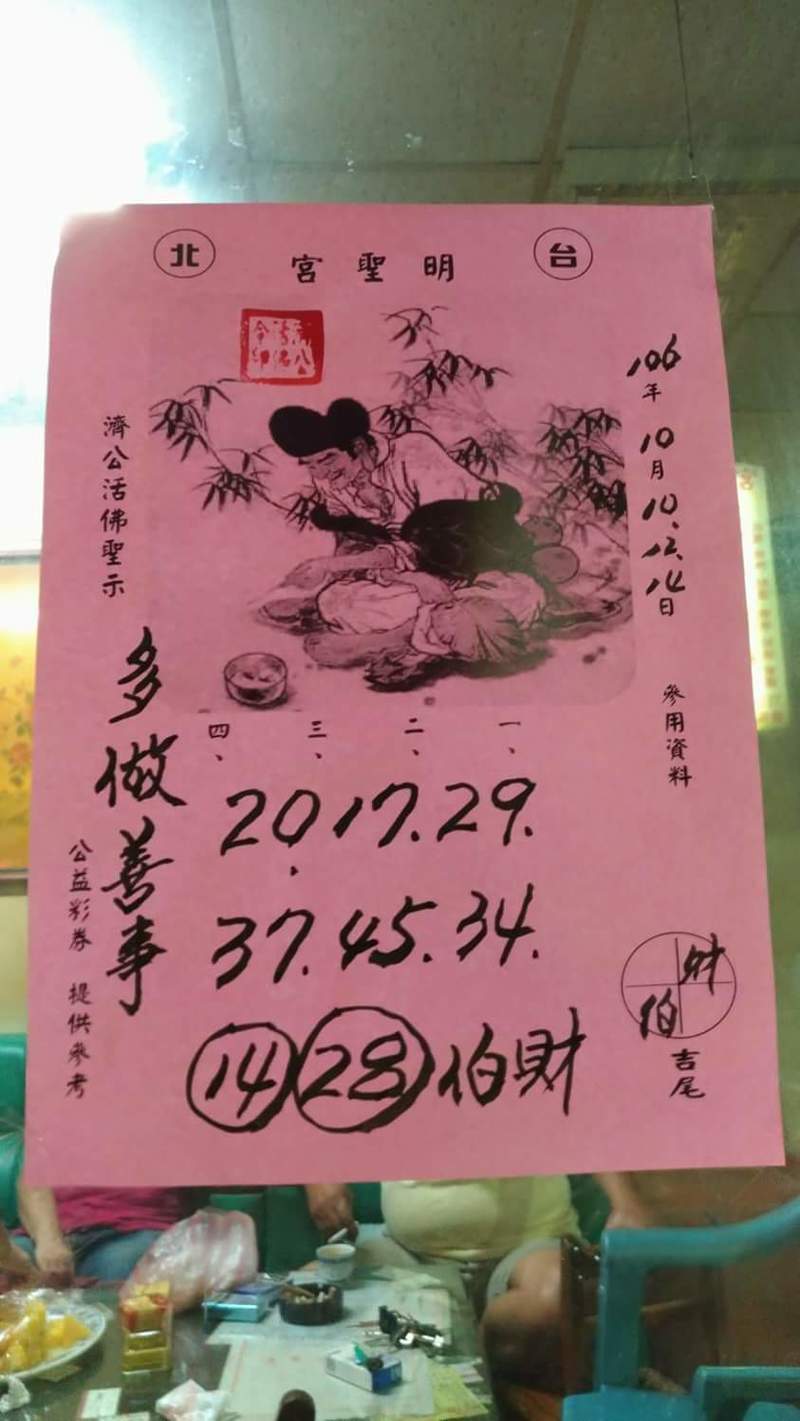 台北
明聖宮
106年10月10.12.14日
參用資料
濟公活佛聖示
多做善事
一、二、三、四、
20.17.29.
37.45.34.
14 28 伯財
財
伯
吉尾
公益彩券 提供參考